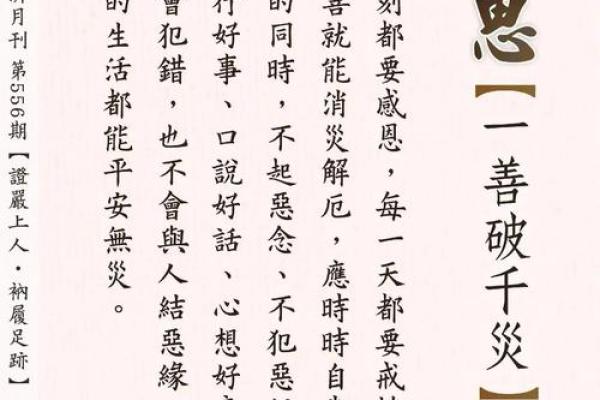 思
【一善破千災】
刻都要感恩，每一天都要戒
善就能消災解厄，應時時自
的同時，不起惡念、不犯惡
行好事、口說好話、心想好
會犯錯，也不會與人結惡緣
的生活都能平安無災。
月刊 第556期【證嚴上人・衲履足跡】